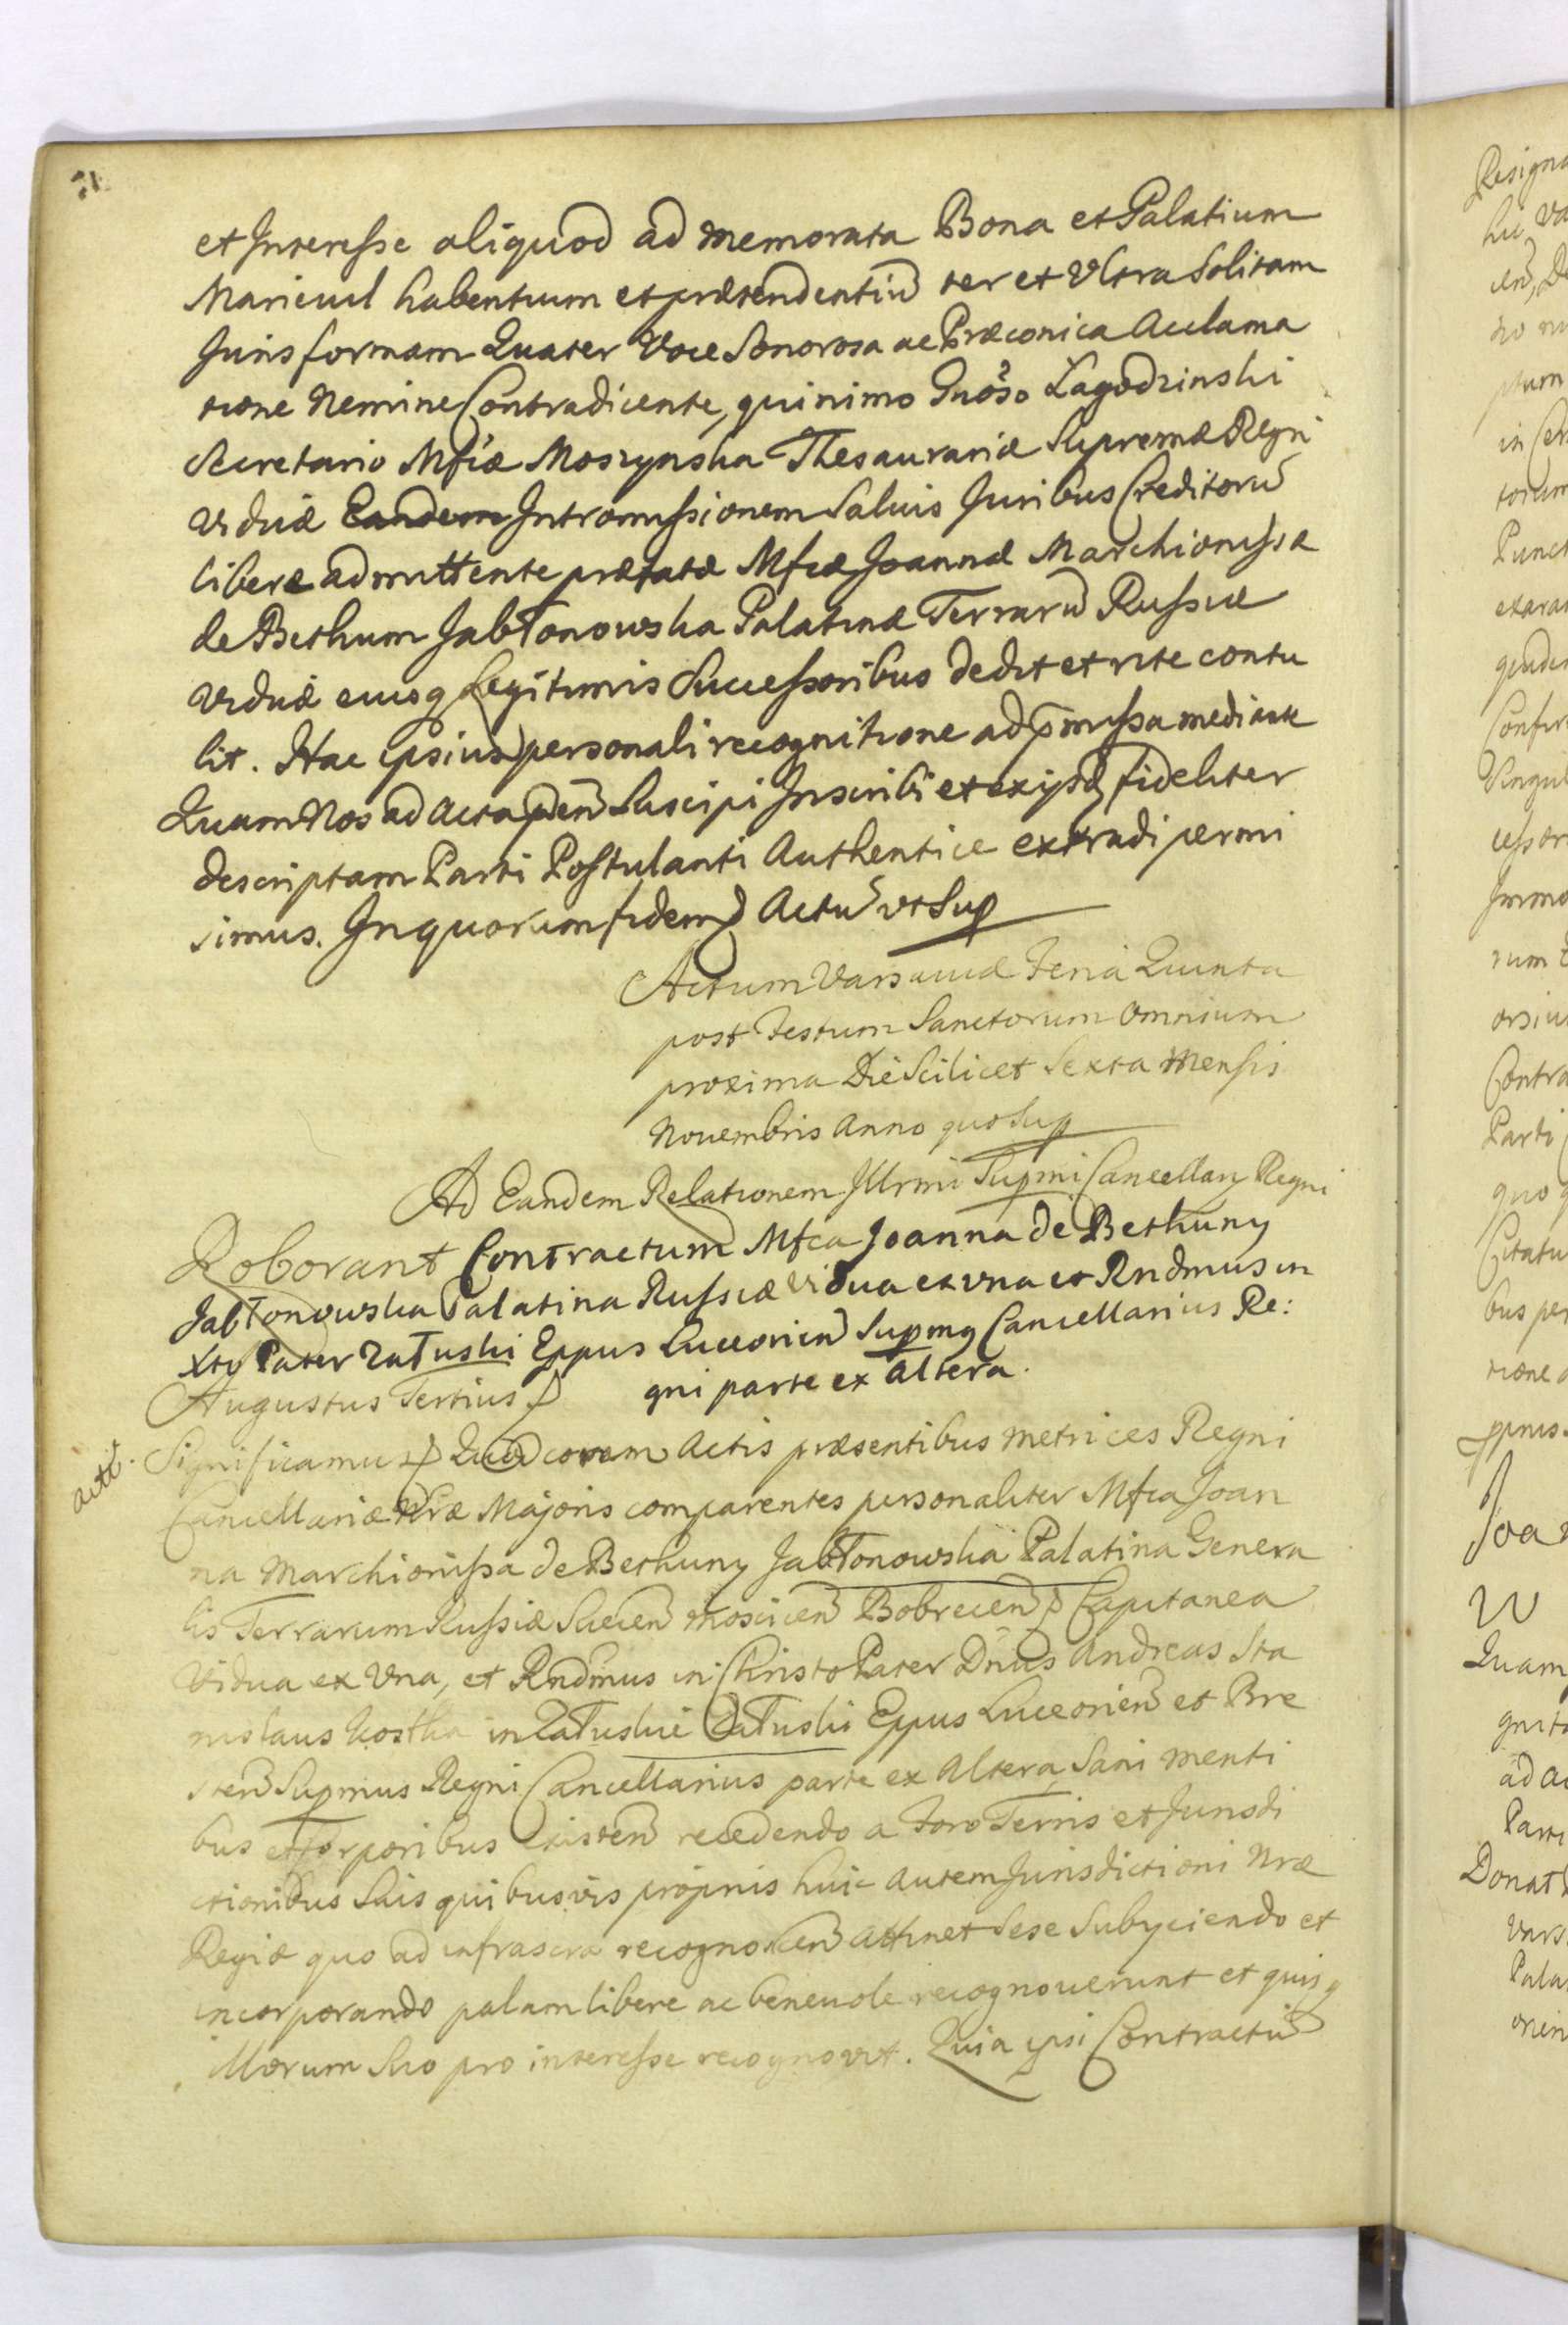 et Interesse aliquod ad memorata Bona et Palatium
Marieuil habentium et prætendentiū ter et Ultra Solitam
Juris formam Quater Voce Sonorosa ac Præconica Acclama
tione Nemine Contradicente, quinimo Gnoso Łagodzinski
Secretario Mficæ Moszynska Thesaurariæ Supremæ Regni
Viduæ Eandem Intromissionem Salvis Juribus Creditorū
libere admittente præfatæ Mficæ Joannæ Marchionissæ
de Bethum Jabłonowska Palatinæ Terrarū Russiæ
Viduæ eiusq Legitimis Successoribus dedit et rite contu
lit. Hac ipsius personali recognitione ad p̄missa mediante
Quam Nos ad Acta p̄sen Suscipi Inscribi et ex ijsd fideliter
descriptam Parti Postulanti Authentice extradi permi
simus. In quorum fidem Actū ut Sup
Actum Varsaviæ Feria Quinta
post Festum Sanctorum Omnium
proxima Die Scilicet Sexta Mensis
Novembris Anno quo Sup
Ad Eandem Relationem Illrmi Supmi Cancellarij Regni
Roborant Contractum Mfca Joanna de Bethuny
Jabłonowska Palatina Russiæ Vidua ex una et Rndmus in
Xto Pater Załuski Eppus Luceorien Supmg Cancellarius Re:
gni parte ex altera.
Augustus Tertius
actt.
Significamus Quia coram Actis præsentibus Metrices Regni
Cancellariæ Nræ Majoris comparentes personaliter Mfca Joan
na Marchionissa de Bethuny Jabłonowska Palatina Genera
lis Terrarum Russiæ Bobrecen Capitanea
Vidua ex Una, et Rndmus in Christo Pater Dnus Andreas Sta
nislaus Kostka in Załuskie Załuski Eppus Luceorien et Bre
sten Supmus Regni Cancellarius parte ex Altera, Sani menti
bus et Corporibus existen recedendo a Foro Terris et Jurisdi
ctionibus Suis quibusvis proprijs huic autem Jurisdictioni Nræ
Regiæ quo ad infrascra recognoscen attinet Sese Subijciendo et
incorporando palam libere ac benevole recognoverunt et quisq
Illorum Suo pro interesse recognovit. Quia ipsi Contractū